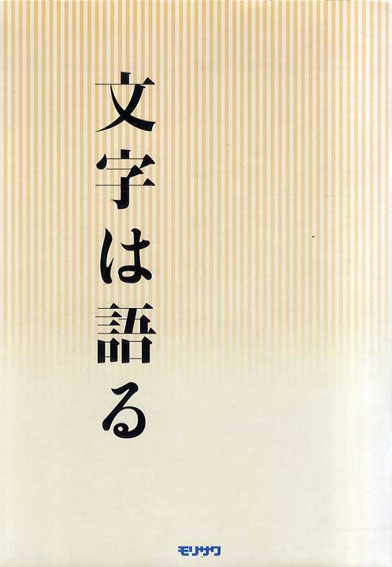 文字は語る
モリサワ